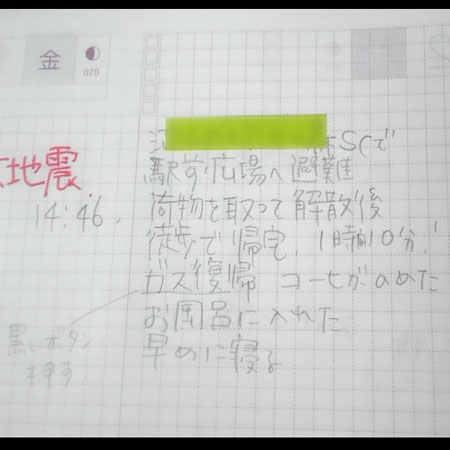 金
070
地震
14:46.
SCで
駅前広場へ避難
荷物を取って解散後
徒歩で帰宅.1時間10分!
ガス復帰 コーヒーがのめた
お風呂に入れた
早めに寝る
黒いボタン
押す.